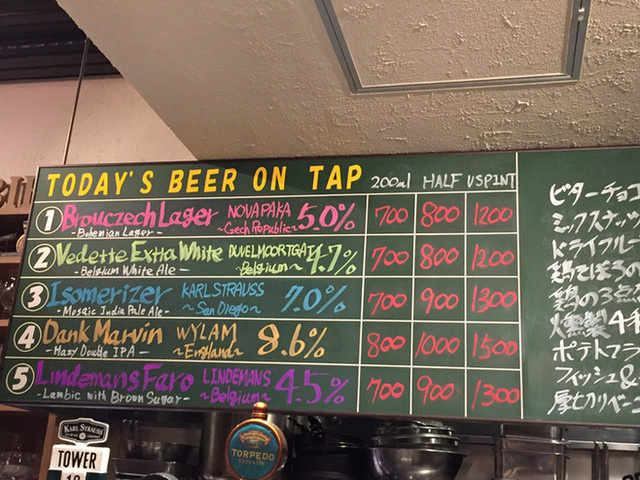 TODAY'S BEER ON TAP 200ml HALF USPINT
1 Brouczech Lager NOVAPAKA 5.0% 700 800 1200
- Bohemian Lager - ~Czech Republic~
2 Vedette Extra White DUVELMOORTGAT 4.7% 700 800 1200
- Belgium White Ale - ~Belgium~
3 Isomerizer KARL STRAUSS 7.0% 700 900 1300
- Mosaic India Pale Ale - ~San Diego~
4 Dank Marvin WYLAM 8.6% 800 1000 1500
- Hazy Double IPA - ~England~
5 Lindemans Faro LINDEMANS 4.5% 700 900 1300
- Lambic with Brown Sugar - ~Belgium~
ビターチョコ
ミックスナッツ
ドライフルー
鶏そぼろの
鶏の3点
燻製4種
ポテトフラ
フィッシュ&
厚切りベーコ
KARL STRAUSS
TOWER
10
TORPEDO
EXTRA IPA